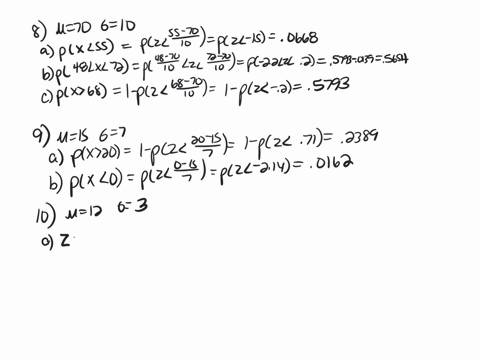 8) μ=70 σ=10
a) p(x<55) = p(z<\frac{55-70}{10})=p(z<-1.5)= .0668
b) p(48<x<72)=p(\frac{48-70}{10}<z<\frac{72-70}{10})=p(-2.2<z< .2)= .5793-.0139=.5654
c) p(x>68)=1-p(z<\frac{68-70}{10})= 1-p(z<-.2)= .5793
9) μ=15 σ=7
a) p(x>20)= 1-p(z<\frac{20-15}{7})= 1-p(z< .71)= .2389
b) p(x<0)=p(z<\frac{0-15}{7})=p(z<-2.14)= .0162
10) μ=12 σ=3
a) z